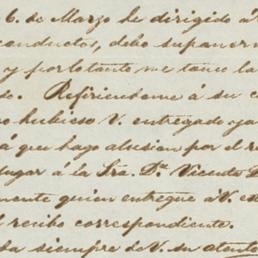 6. de Marzo he dirigido á
conductos, debo suponer
y por lo tanto me tomo la
do. Refiriendome á su c
hubiese V. entregado ya
á que hago alusion por el r
lugar á la Sra. Dª. Vicenta D
mente quien entregue á V. es
l recibo correspondiente.
siempre de V. su atento